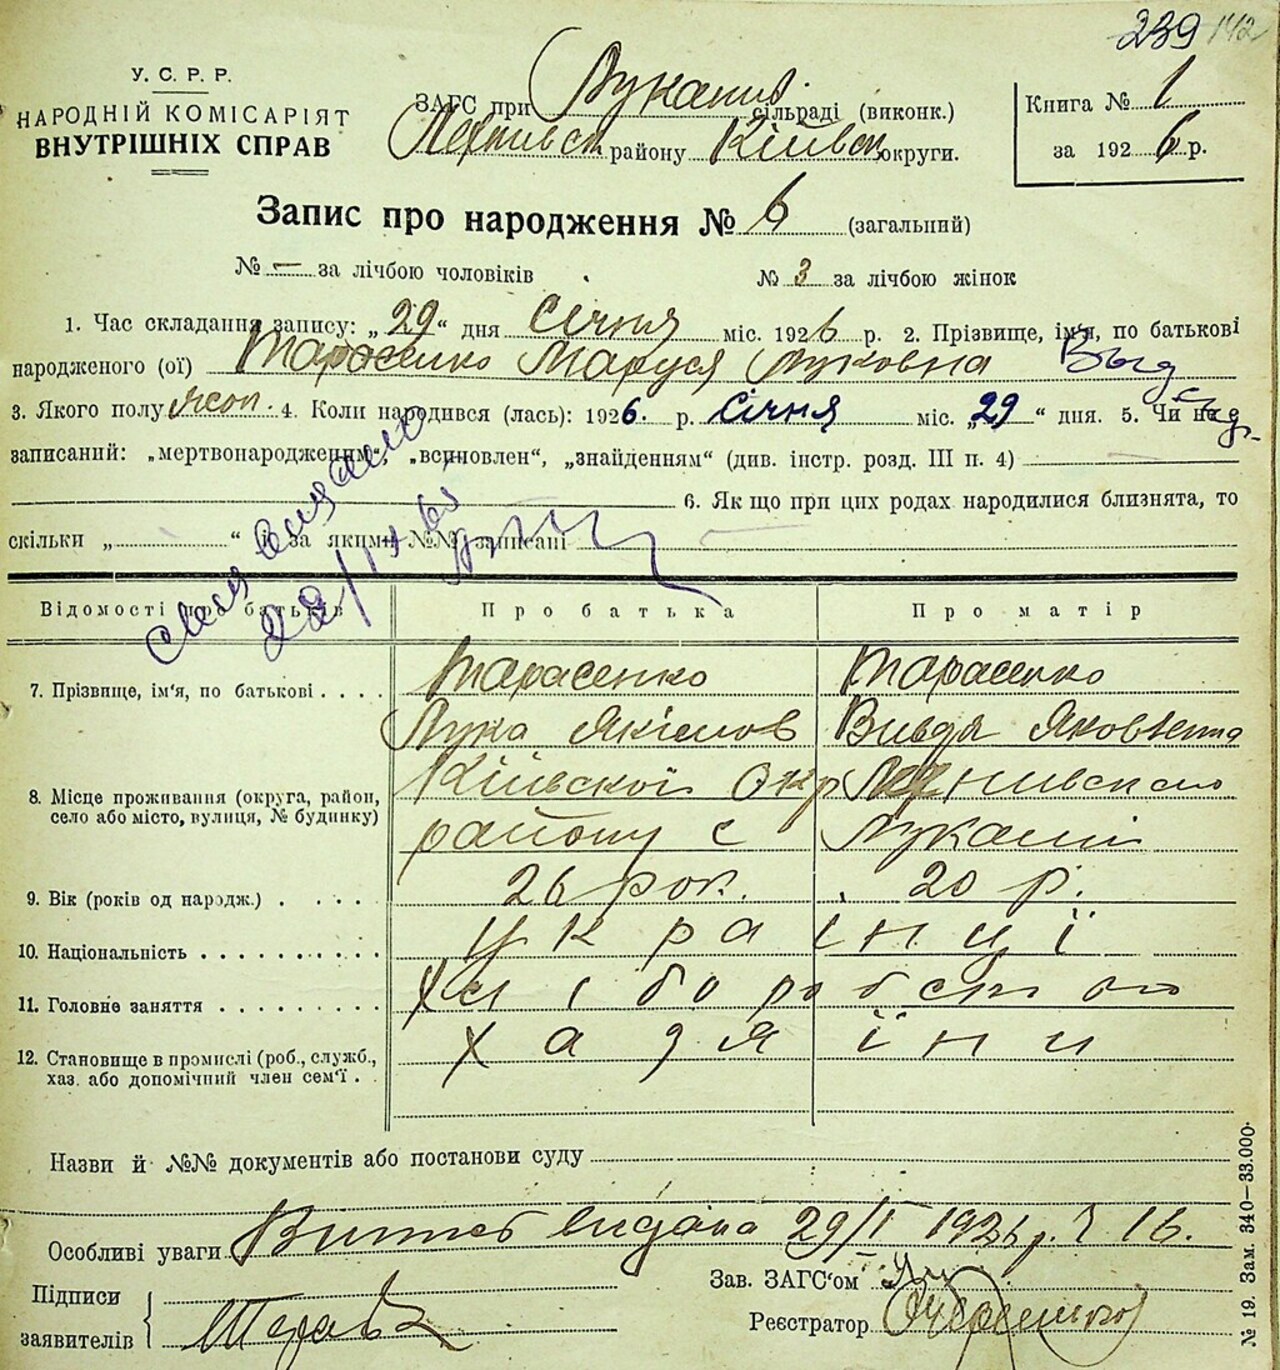 239 142
У. С. Р. Р.
НАРОДНІЙ КОМІСАРІЯТ
ВНУТРІШНІХ СПРАВ
ЗАГС при Лукаши сільраді (виконк.)
району Київськ округи.
Книга № 1
за 1926 р.
Запис про народження № 6 (загальний)
№ — за лічбою чоловіків № 3 за лічбою жінок
1. Час складання запису: „29“ дня Січня міс. 1926 р. 2. Прізвище, ім'я, по батькові
народженого (ої) Тарасенко Маруся Луковна
3. Якого полу жоп. 4. Коли народився (лась): 1926. р. Січня міс. „29“ дня. 5. Чи не
записаний: „мертвонародженим“, „всиновлен“, „знайденням“ (див. інстр. розд. III п. 4)
6. Як що при цих родах народилися близнята, то
скільки „ “ і за якими №№ записані
Відомості про батьків
Про батька
Про матір
7. Прізвище, ім'я, по батькові . . . .
Тарасенко
Тарасенко
Лука Якімов
Яковлевна
8. Місце проживання (округа, район,
село або місто, вулиця, № будинку)
Київської Окр
району с Лукаші
9. Вік (років од народж.) . . . .
26 рок.
20 р.
10. Національність . . . . . . . . . .
українці
11. Головне заняття . . . . . . . . .
Хліборобство
12. Становище в промислі (роб., служб.,
хаз. або допомічний член сем'ї . .
хазяїни
Назви й №№ документів або постанови суду
Особливі уваги Витяг видано 29/I 1926 р. № 16.
Підписи
заявителів
Зав. ЗАГС'ом
Реєстратор
№ 19. Зам. 340—33.000.